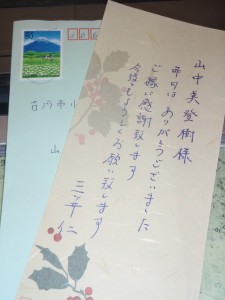 山中美登樹様
昨日はありがとうございました
ご縁に感謝致します
今後ともよろしくお願い致します
三ツ平 仁
80
古河市
山